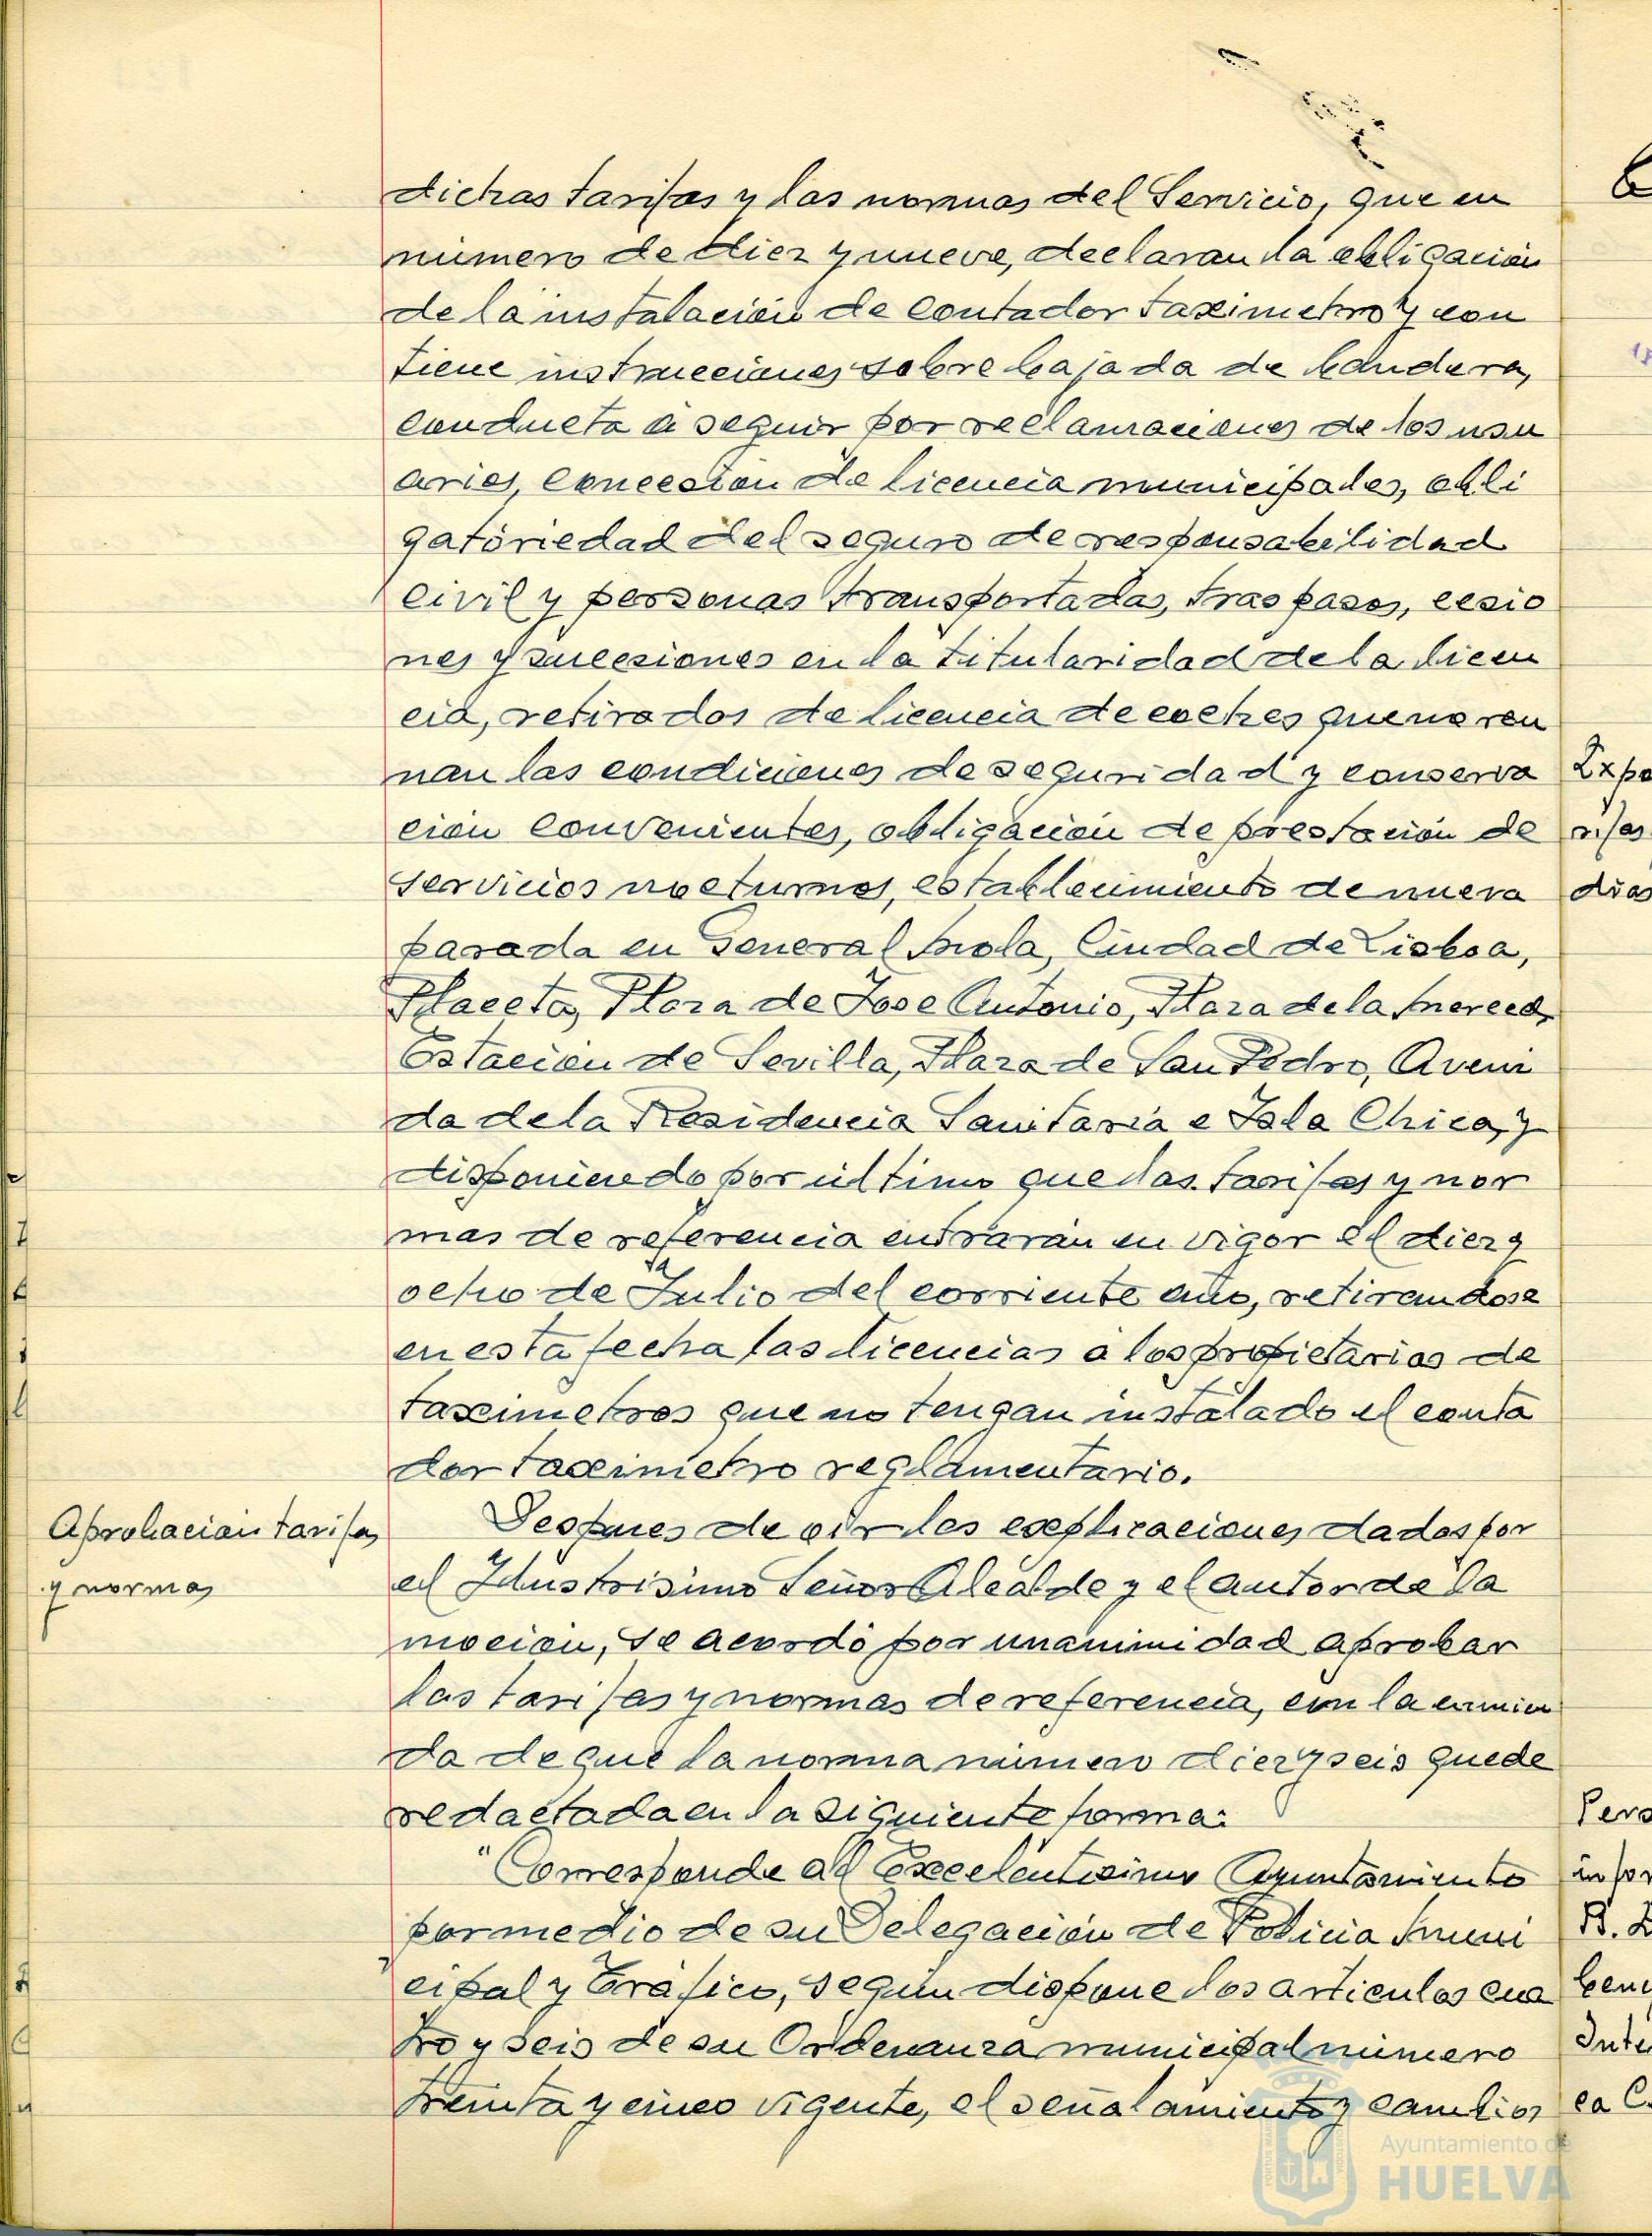 dichas tarifas y las normas del Servicio, que en
número de diez y nueve, declaran la obligación
de la instalación de contador taximetro y con
tiene instrucciones sobre bajada de bandera,
conducta a seguir por reclamaciones de los usu
arios, concesión de licencia municipales, obli
gatoriedad del seguro de responsabilidad
civil y personas transportadas, traspasos, cesio
nes y sucesiones en la titularidad de la licen
cia, retirados de licencia de coches que no reu
nan las condiciones de seguridad y conserva
cion convenientes, obligación de prestación de
servicios nocturnos, establecimiento de nueva
parada en General Mola, Ciudad de Lisboa,
Placeta, Plaza de Jose Antonio, Plaza de la Merced,
Estacion de Sevilla, Plaza de San Pedro, Aveni
da de la Residencia Sanitaria e Isla Chica, y
disponiendo por último que las tarifas y nor
mas de referencia entrarán en vigor el diez y
ocho de Julio del corriente año, retirandose
en esta fecha las licencias a los propietarios de
taximetros que no tengan instalado el conta
dor taximetro reglamentario.
Aprobacion tarifas
y normas
Despues de oir las explicaciones dadas por
el Ilustrisimo Señor Alcalde y el autor de la
mocion, se acordó por unanimidad aprobar
las tarifas y normas de referencia, con la enmien
da de que la norma número diez y seis quede
redactada en la siguiente forma:
"Corresponde al Excelentisimo Ayuntamiento
por medio de su Delegación de Policia Muni
cipal y Tráfico, según dispone los articulos cua
tro y seis de su Ordenanza municipal número
treinta y cinco vigente, el señalamiento y cambios
Ayuntamiento de
HUELVA